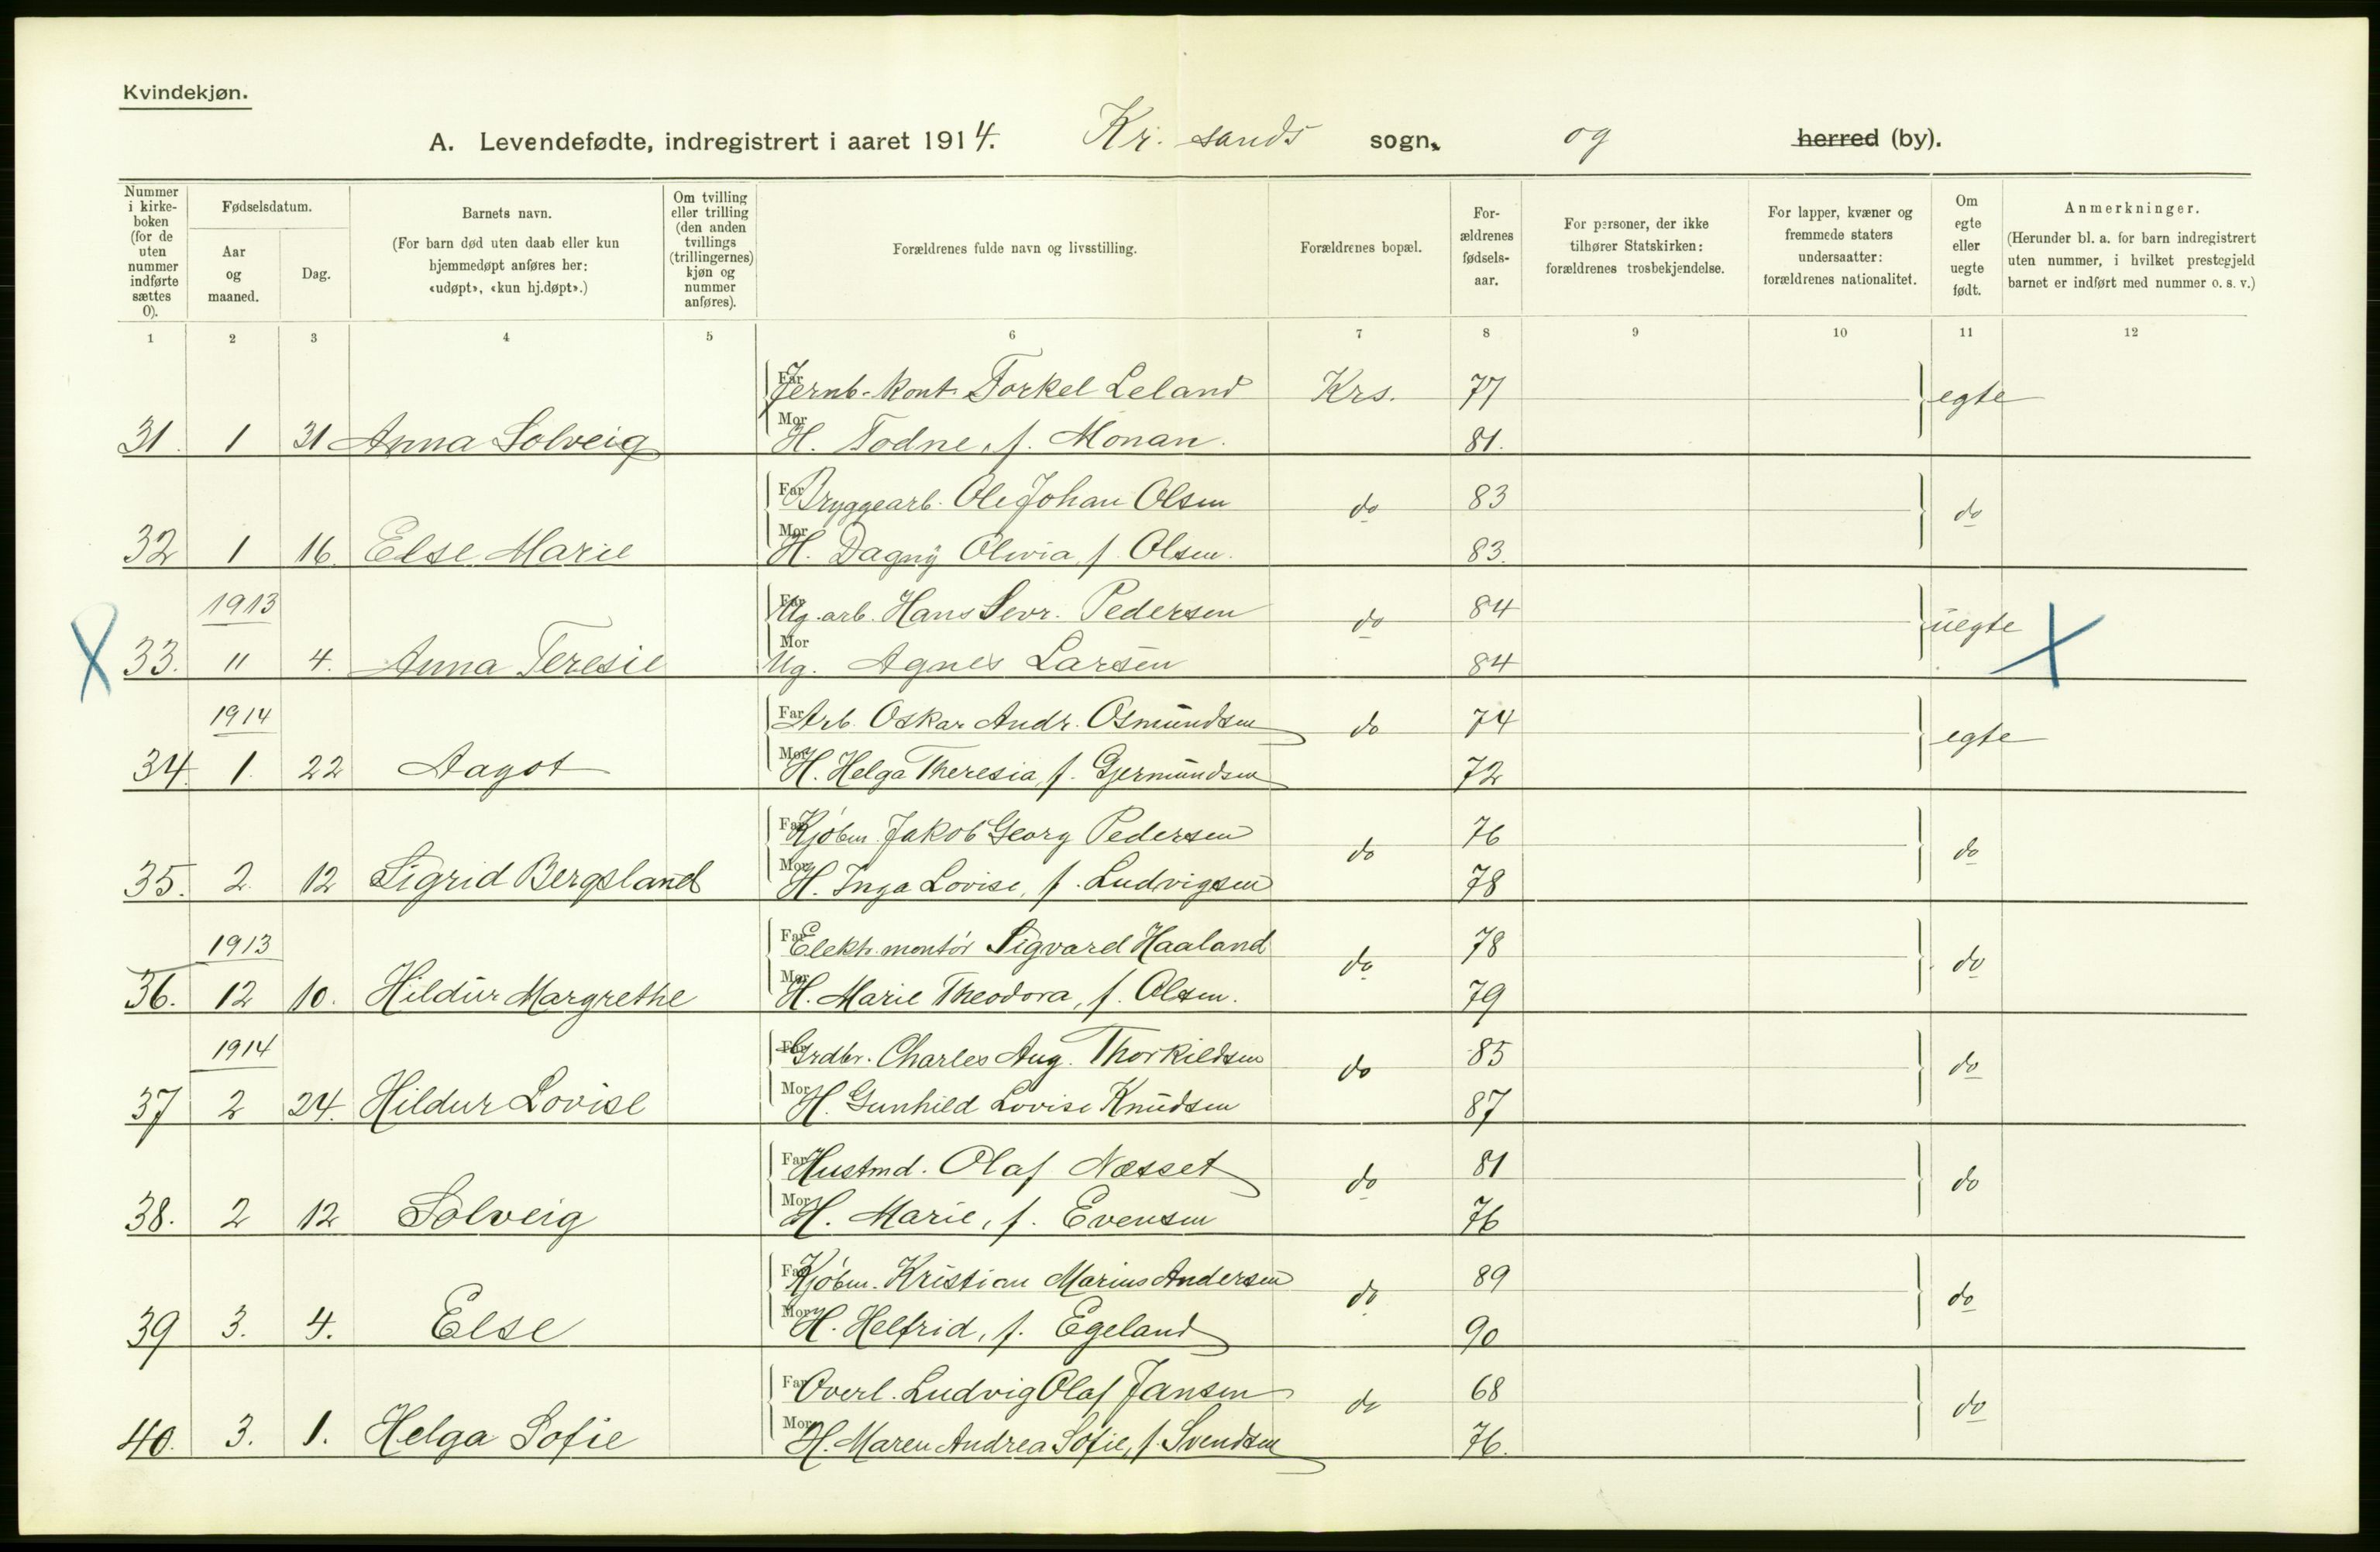 Kvindekjøn.
A. Levendefødte, indregistrert i aaret 1914. Kr.sands sogn. og herred (by).
Nummer i kirke-boken (for de uten nummer indførte sættes 0).
Fødselsdatum.
Aar og maaned.
Dag.
Barnets navn.
(For barn død uten daab eller kun hjemmedøpt anføres her: «udøpt», «kun hj.døpt».)
Om tvilling eller trilling (den anden tvillings (trillingernes) kjøn og nummer anføres).
Forældrenes fulde navn og livsstilling.
Forældrenes bopæl.
For-ældrenes fødsels-aar.
For personer, der ikke tilhører Statskirken: forældrenes trosbekjendelse.
For lapper, kvæner og fremmede staters undersaatter: forældrenes nationalitet.
Om egte eller uegte født.
Anmerkninger.
(Herunder bl. a. for barn indregistrert uten nummer, i hvilket prestegjeld barnet er indført med nummer o. s. v.)
1 2 3 4 5 6 7 8 9 10 11 12
Far Jernb-kont. Torkel Leland Krs. 77 egte
31. 1 31 Anna Solveig Mor H. Todne, f. Monan. 81.
Far Bryggearb. Ole Johan Olsen do 83 do
32 1 16. Else Marie Mor H. Dagny Olivia, f. Olsen. 83.
1913 Far Ug. arb. Hans Sevr. Pedersen do 84 uegte
33. 11 4. Anna Teresie Mor Ug. Agnes Larsen 84
1914 Far Arb. Oskar Andr. Osmundsen do 74 egte
34. 1. 22 Aagot Mor H. Helga Theresia, f. Gjermundsen 72
Far Kjøbm. Jakob Georg Pedersen do 76 do
35. 2. 12 Sigrid Bergsland Mor H. Inga Lovise, f. Ludvigsen 78
1913 Far Elektr. montør Sigvard Haaland do 78 do
36. 12 10. Hildur Margrethe Mor H. Marie Theodora, f. Olsen. 79
1914 Far Grdbr. Charles Aug. Thorkildsen do 85 do
37 2 24. Hildur Lovise Mor H. Gunhild Lovise Knudsen 87
Far Hustmd. Olaf Næsset do 81 do
38. 2 12 Solveig Mor H. Marie, f. Evensen 76
Far Kjøbm. Kristian Marius Andersen do 89 do
39 3. 4. Else Mor H. Helfrid, f. Egeland 90
Far Overl. Ludvig Olaf Jansen do 68 do
40. 3. 1. Helga Sofie Mor H. Maren Andrea Sofie, f. Svendsen 76.